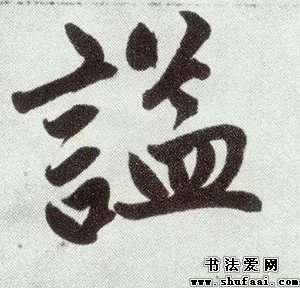 謚
书法爱网
www.shufaai.com